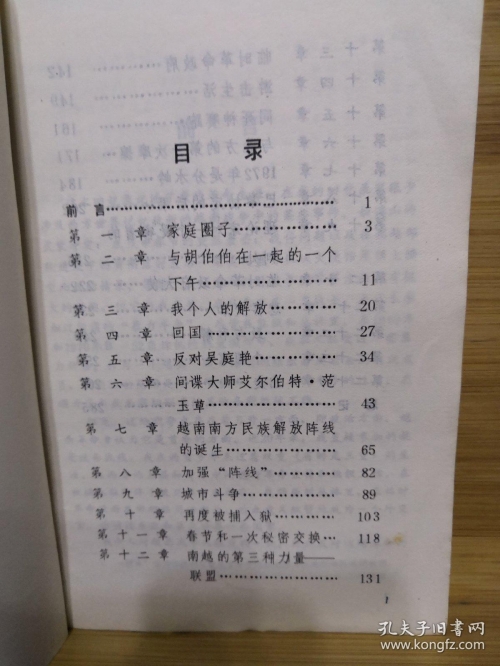 目 录
前 言 1
第 一 章 家庭圈子 3
第 二 章 与胡伯伯在一起的一个
下午 11
第 三 章 我个人的解放 20
第 四 章 回国 27
第 五 章 反对吴庭艳 34
第 六 章 间谍大师艾尔伯特·范
玉草 43
第 七 章 越南南方民族解放阵线
的诞生 65
第 八 章 加强“阵线” 82
第 九 章 城市斗争 89
第 十 章 再度被捕入狱 103
第 十一 章 春节和一次秘密交换 118
第 十二 章 南越的第三种力量——
联盟 131
1
孔夫子旧书网
www.kongfz.com